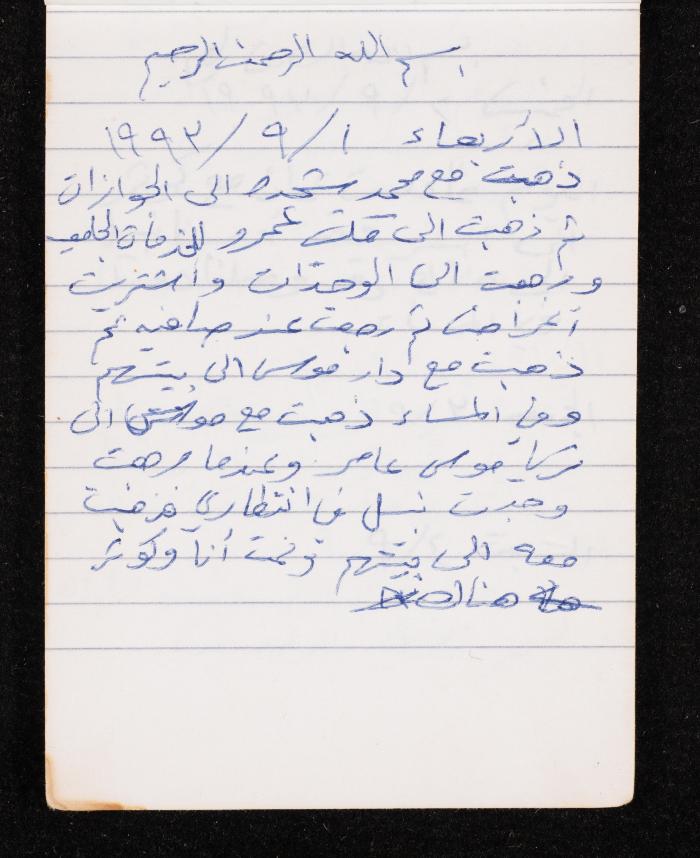 بسم الله الرحمن الرحيم
الأربعاء ١/٩/١٩٩٣
ذهبت مع محمد شحده الى الجوازات
ثم ذهبت الى مكتب عمرو للخدمات الجامعيه
ورجعت الى الوحدات واشتريت
أغراض ثم رجعت عند صافيه ثم
ذهبت مع دار موسى الى بيتهم
وفي المساء ذهبت مع موسى الى
موسى عامر وعندما رجعت
وجدت نبيل في انتظاري فذهبت
معه الى بيتهم ونمت أنا وكوثر
هناك